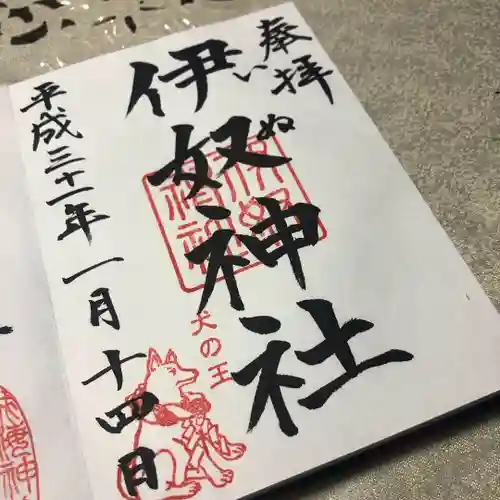 奉拝
伊奴神社
いぬ
伊奴
神社
犬の王
平成三十一年一月十四日